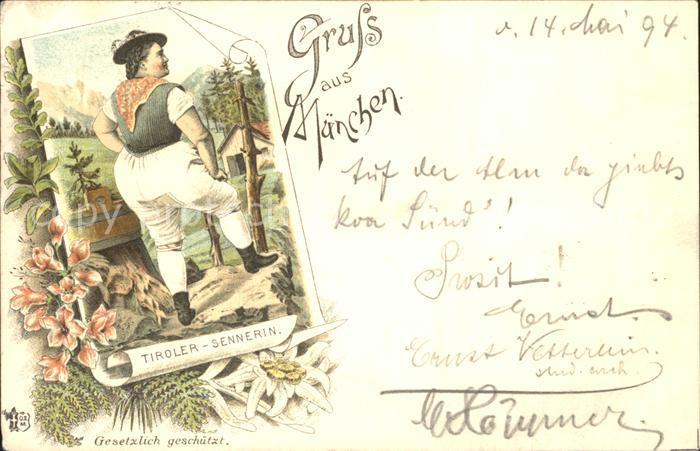 Gruss
aus
München.
v. 14. Mai 94.
Auf der Alm da giebts
koa Sünd"!
Prosit!
Ernst.
Ernst Vetterlein.
stud. arch.
TIROLER-SENNERIN.
Gesetzlich geschützt.